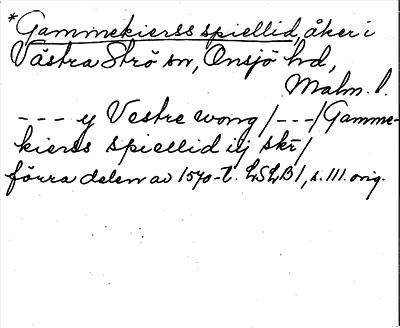 *Gammekierss spiellid, åker i
Västra Strö sn, Onsjö hd,
Malm. l.
--- y Vestre wong /---/ Gamme-
kierss spiellid iij skr /
förra delen av 1570-t. LSLB 1, s. 111. orig.